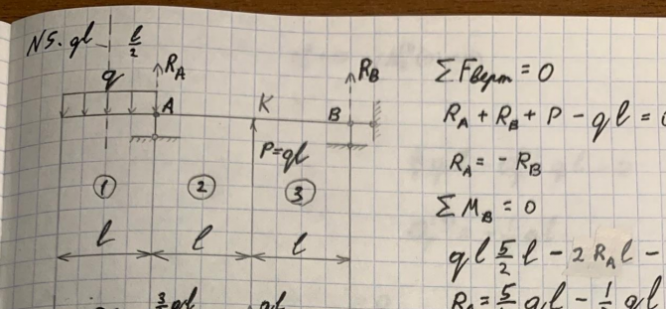 N5. ql l/2
q
R_A
R_B
A
K
B
P=ql
① ② ③
l l l
3/2 ql ql
ΣFверт = 0
R_A + R_B + P - ql =
R_A = - R_B
ΣM_B = 0
ql 5/2 l - 2 R_A l -
ql - ql